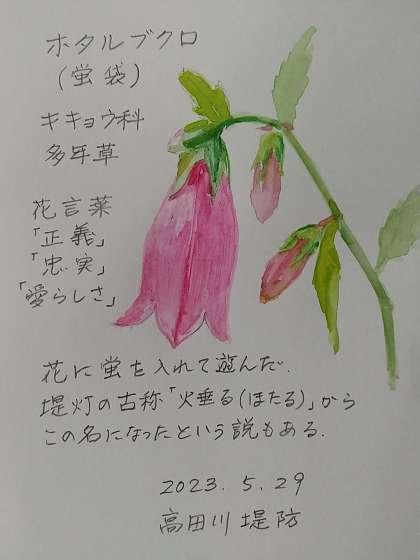 ホタルブクロ
(蛍袋)
キキョウ科
多年草
花言葉
「正義」
「忠実」
「愛らしさ」
花に蛍を入れて遊んだ.
堤灯の古称「火垂る(ほたる)」から
この名になったという説もある.
2023.5.29
高田川堤防